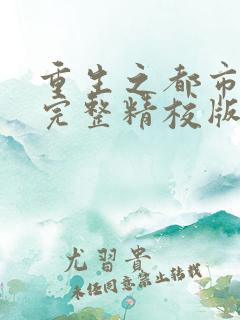 重生之都市
完整精校版
尤習貴
未经同意禁止转载